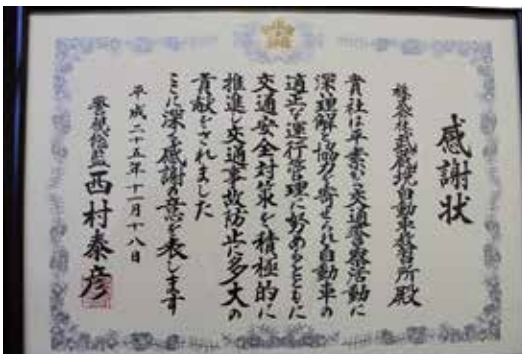 感謝状
株式会社武蔵境自動車教習所殿
貴社は平素から交通警察活動に
深い理解と協力を寄せられ自動車の
適正な運行管理に努めるとともに
交通安全対策を積極的に
推進し交通事故防止に多大の
貢献をされました
ここに深く感謝の意を表します
平成二十五年十一月十八日
警視総監 西村泰彦